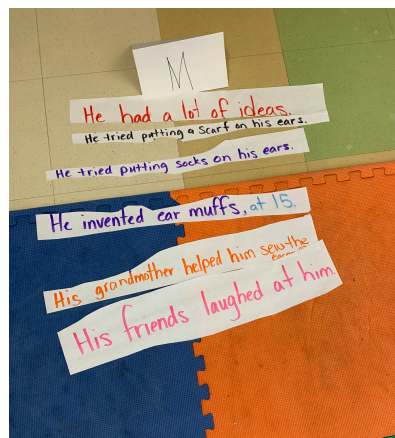 M
He had a lot of ideas.
He tried putting a scarf on his ears.
He tried putting socks on his ears.
He invented ear muffs, at 15.
His grandmother helped him sew the
His friends laughed at him.